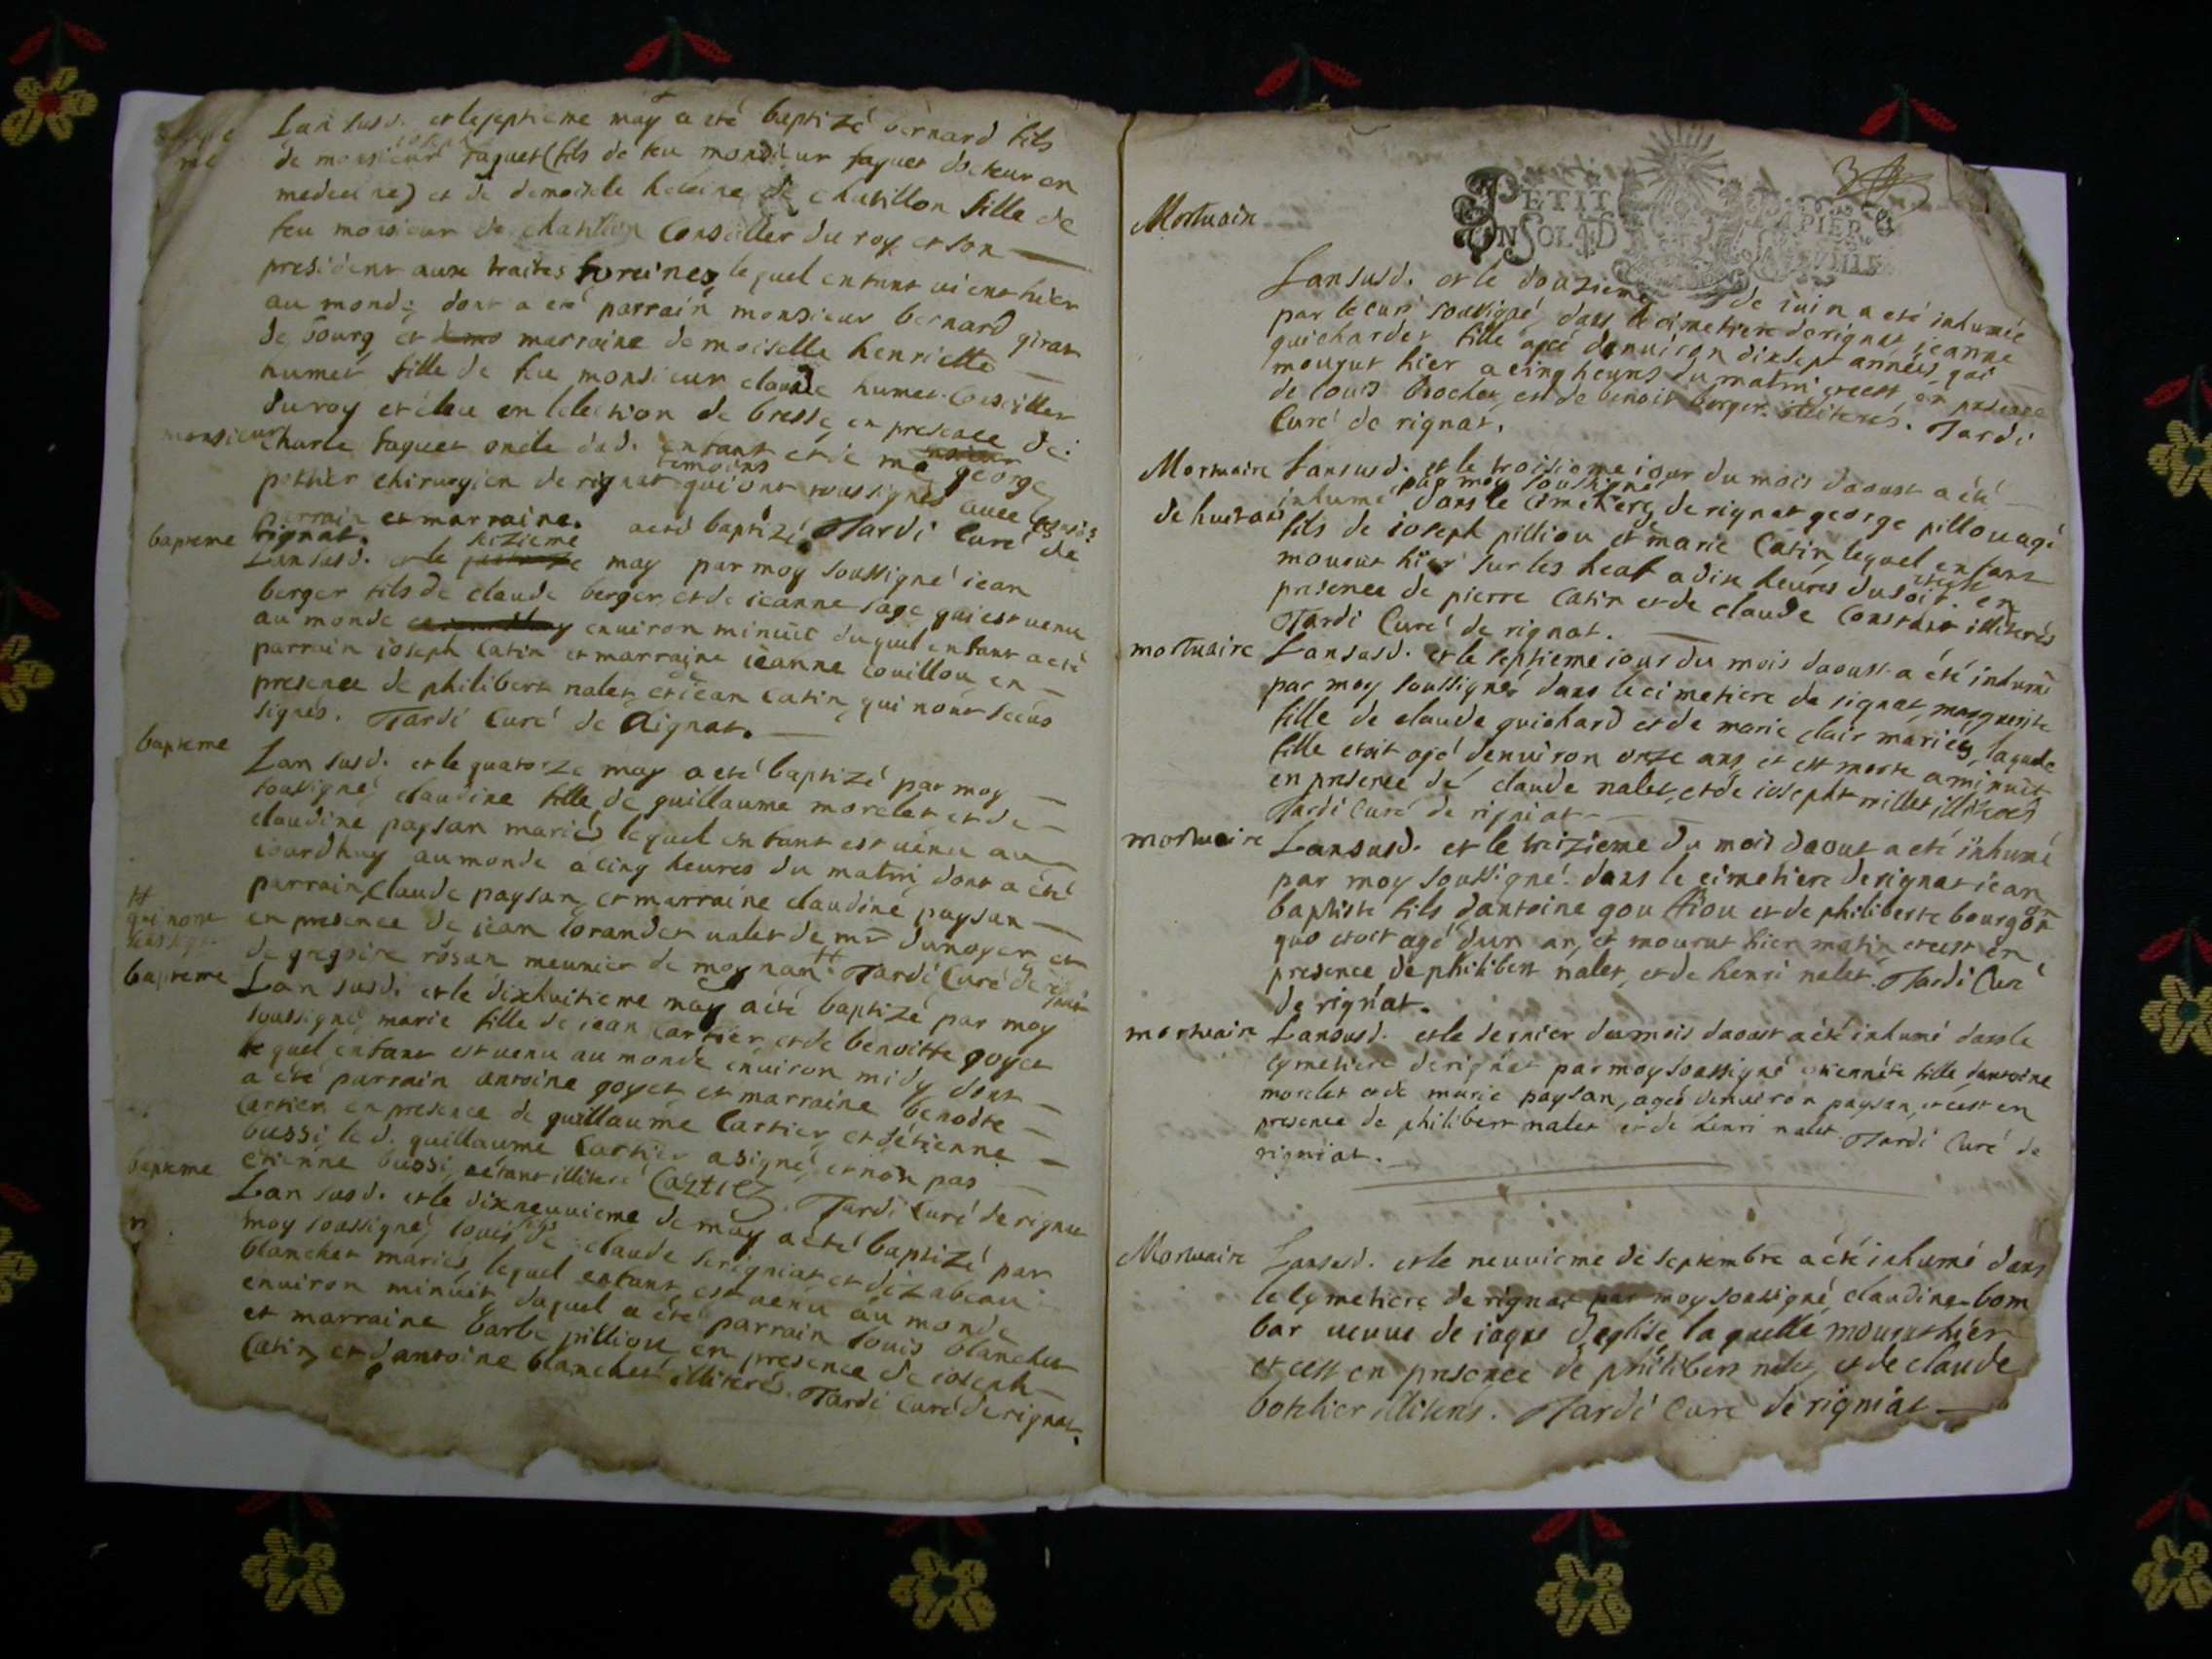 Lan susd. et le septieme may a eté baptizé bernard fils
de monsieur joseph faguet (fils de feu monsieur faguet docteur en
medecine) et de demoiselle heleine de chatillon fille de
feu monsieur de chatillon Conseiller du roy et son
president aux traites foreines, lequel enfant vient hier
au monde, dont a eté parrain monsieur bernard girat
de bourg et marraine demoiselle henriette
humet fille de feu monsieur claude humet Conseiller
du roy et éleu en lélection de bresse, en presence de
monsieur charle faguet oncle dud. enfant et de me george
pothier chirurgien de rignat temoins qui ont soussignés avec lesusd.
parrain et marraine. Tardi Curé de
rignat.
bapteme
Lan susd. et le seizieme may a eté baptizé par moy soussigné iean
berger fils de claude berger, et de ieanne sage qui est venu
au monde environ minuit duquel enfant a eté
parrain ioseph Catin et marraine ieanne Couillou, en
presence de philibert nalet, et de iean Catin, qui nont sceus
signés. Tardi Curé de Rignat.
bapteme
Lan susd. et le quatorze may a eté baptizé par moy
soussigné, claudine fille de guillaume morelet et de
claudine paysan mariés, lequel enfant est venu au
iourdhuy au monde a cinq heures du matin, dont a été
parrain Claude paysan, et marraine claudine paysan
en presence de iean lorandet valet de mr dunoyer, et
de gregoire rosan meunier de moynan. Tardi Curé de rignat
qui nont
soussigné
bapteme
Lan susd. et le dixhuitieme may a été baptizé par moy
soussigné, marie fille de iean Cartier, et de benoitte goyet
lequel enfant est venu au monde environ midy dont
a été parrain antoine goyet et marraine benoite
Cartier, en presence de guillaume Cartier, et détienne
bussi, le d. guillaume Cartier a signé, et non pas
etienne bussi, etant illiteré Cartier. Tardi Curé de rignat
bapteme
Lan susd. et le dixneuvieme de may a eté baptizé par
moy soussigné, louis fils de claude serigniat et dizabeau
blanchet mariés, lequel enfant est venu au monde
environ minuit, duquel a eté parrain louis blanchet
et marraine barbe pilliou, en presence de ioseph
Catin, et dantoine blanchet illiterés. Tardi Curé de rignat.
PETIT PAPIER
UN SOL
Mortuaire
Lan susd. et le douzieme de iuin a eté inhumée
par le curé soussigné, dans le cimetiere de rignat, ieanne
guichardet fille agée denviron dixsept années, qui
mourut hier a cinq heures du matin et cest en presence
de louis brochet, et de benoit berger illiterés. Tardi
Curé de rignat.
Mortuaire
Lan susd. et le troisieme iour du mois daoust a été
inhumé par moy soussigné dans le cimetiere de rignat george pillou agé
de huit ans
fils de ioseph pilliou et de marie Catin, lequel enfant
mourut hier sur les heaf a dix heures du soir. et cest en
presence de pierre Catin et de claude Constant illiterés
Tardi Curé de rignat.
mortuaire
Lan susd. et le septieme iour du mois daoust a été inhumé
par moy soussigné dans le cimetiere de rignat, marguerite
fille de claude guichard et de marie clair mariés, laquele
fille etoit agé denviron onze ans, et est morte a minuit
en presence de claude nalet, et de ioseph millet illiterés
Tardi Curé de rigniat
mortuaire
Lan susd. et le treizieme du mois daout a eté inhumé
par moy soussigné dans le cimetiere de rignat iean
baptiste fils dantoine goutiou et de philiberte bourgeon
qui etoit agé dun an, et mourut hier matin et cest en
presence de philibert nalet, et de henri nalet. Tardi Curé
de rigniat.
mortuaire
Lan susd. et le dernier du mois daoust a été inhumé dans le
cymetiere de rignat par moy soussigné etiennete fille dantoine
morelet et de marie paysan, ageé denviron paysan, et cest en
presence de philibert nalet et de henri nalet Tardi Curé de
rigniat.
Mortuaire
Lan susd. et le neuvieme de septembre a été inhumé dans
le cymetiere de rignat par moy soussigné, claudine bom
bar veuve de iaque deglise, laquelle mourut hier
et cest en presence de philibert nalet, et de claude
botelier illiterés. Tardi Curé de rigniat